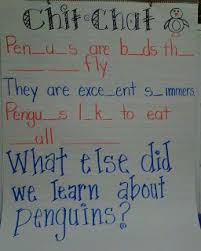 Chit-Chat
Pen_u_s are b_ds th_
_ _ _ _ _ _ fly.
They are exce_ent s_immers.
Pengu_s l_k_ to eat
_ _all _ _ _ _.
What else did
we learn about
penguins?